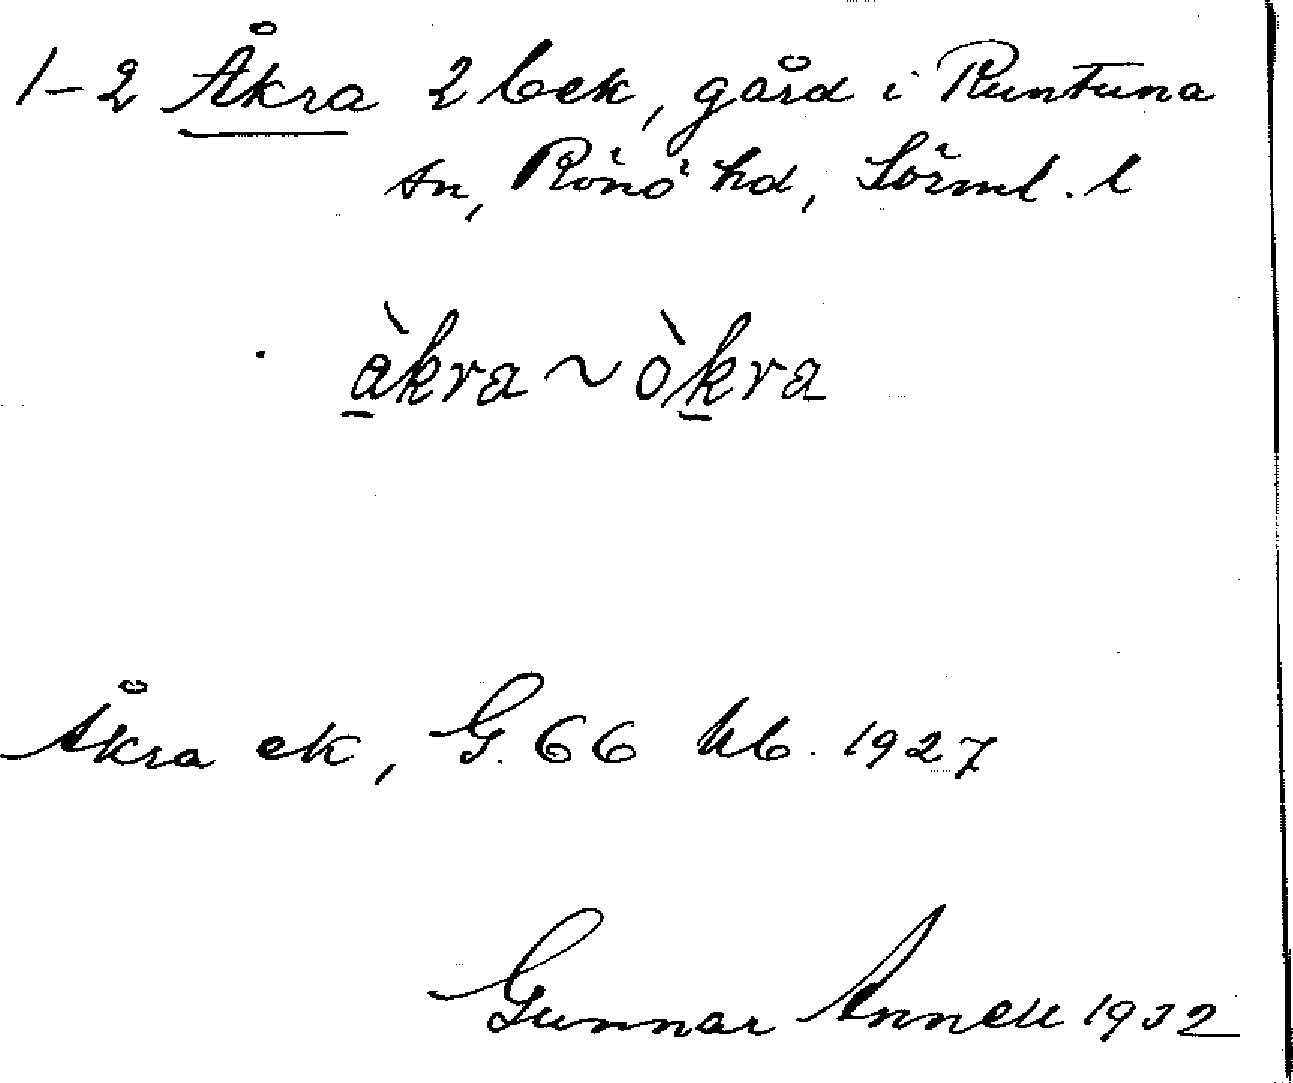 1-2 Åkra 2 bek, gård i Runtuna
sn, Rönö hd, Sörml. l
a̱̍̀kra ~ òḵra
Åkra ek, G. 66 Ub. 1927
Gunnar Annell 1932